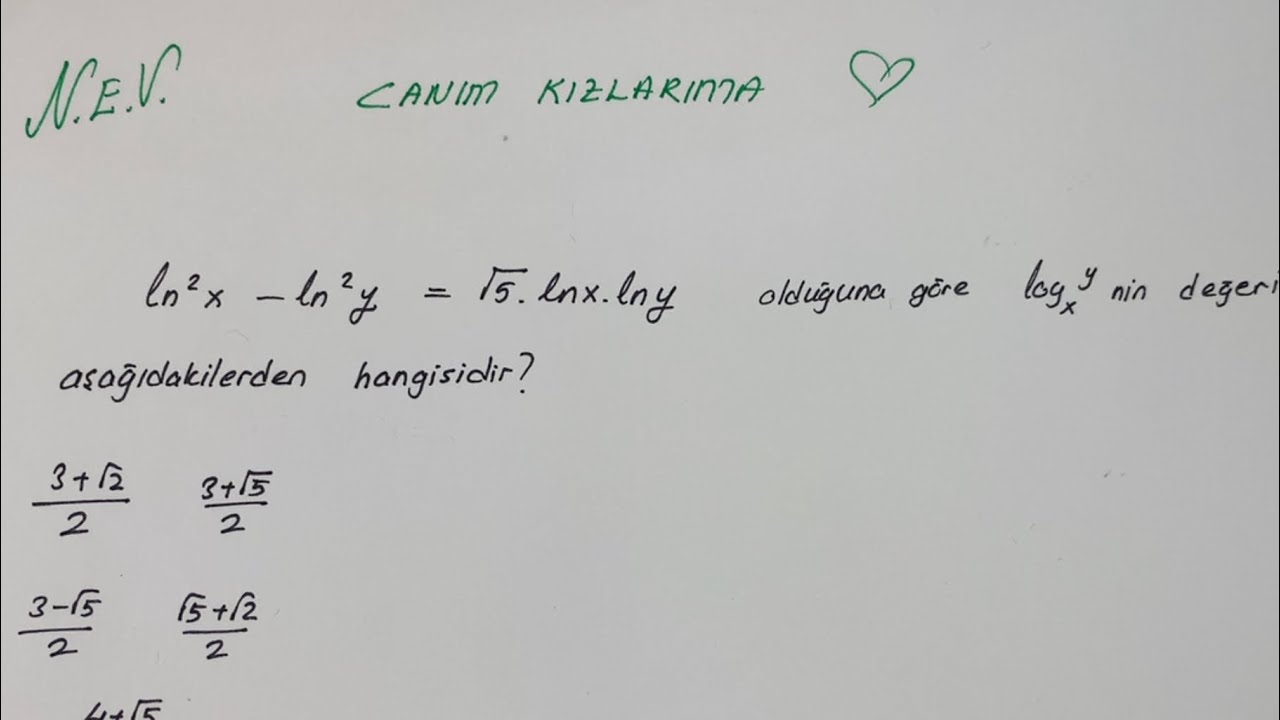 N.E.V. CANIM KIZLARIMA ♡
ln²x - ln²y = √5 . lnx . lny olduğuna göre logₓy nin değeri
aşağıdakilerden hangisidir?
(3+√2)/2 (3+√5)/2
(3-√5)/2 (√5+√2)/2
4+√5